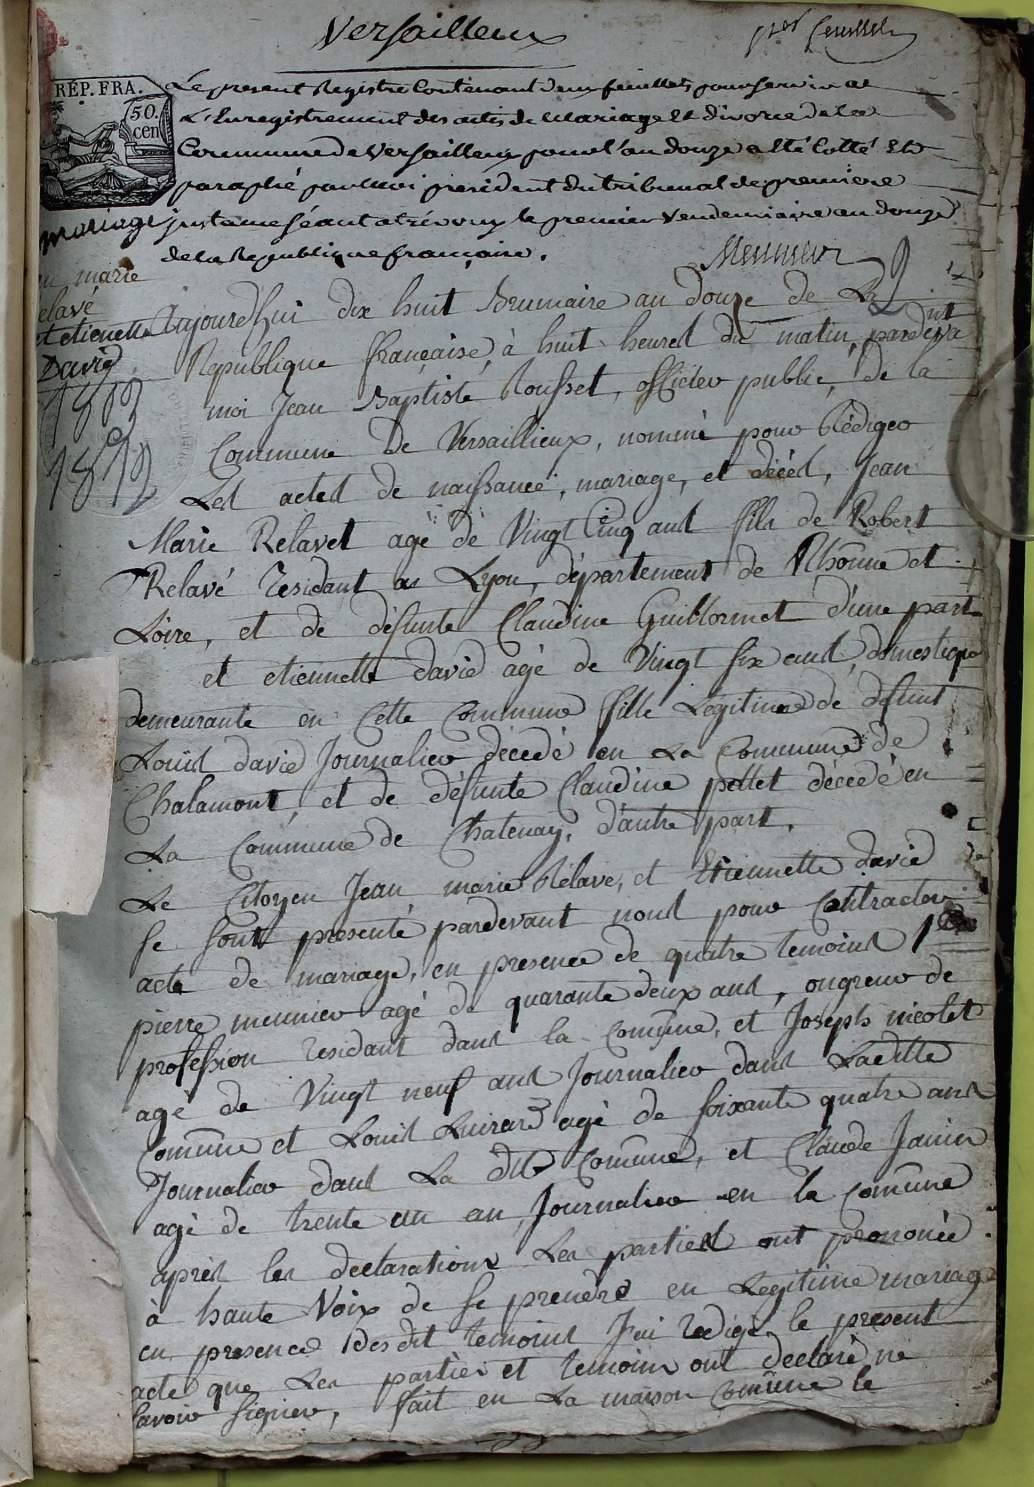 Versailleux
1er feuillet
RÉP. FRA.
50.
cen
Le present Registre Contenant deux feuillets pour servir a
L'Enregistrement des actes de Mariage Et divorce de la
Commune de Versailleux pour l'an douze a Eté Cotté Et
paraphé par moi président du tribunal de premiere
justance séant a trévoux le premier Vendemiaire an douze
de la Republique françoise.
Meunier
mariage
jean marie
relavé
et etiennette
David
1803
Aujourd'hui dix huit Brumaire an douze de La
Republique française, à huit heures du matin, pardevant
moi Jean Baptiste Rousset, officier public, de la
Commune de Versaillieux, nommé pour Rédiger
Les actes de naissance, mariage, et décès, Jean
Marie Relavet agé de Vingt Cinq ans fils de Robert
Relavé residant a Lyon, département de Rhônne et
Loire, et de défunte Claudine Guillormet d'une part
et etiennette david agé de Vingt six ans, domestique
demeurante en Cette Commune fille Légitime de défunt
Louis david Journalier décedé en La Commune de
Chalamont, et de défunte Claudine pellet décedé en
La Commune de Chatenay, d'autre part.
Le Citoyen Jean marie Rélavé, et Etiennette david
se sont presenté pardevant nous pour Contracter
acte de mariage, en presence de quatre temoins
pierre meunier agé de quarante deux ans, ongreur de
profession residant dans la Comune, et Joseph nicolet
agé de Vingt neuf ans Journalier dans Laditte
Comune et Louis agé de soixante quatre ans
Journalier dans La dite Comune, et Claude Janin
agé de trente un an, Journalier en la Comune
après les declarations Les parties ont prononcé
à haute Voix de se prendre en Legitime mariage
en presence des dit temoins J'ai redigé le present
acte que Les parties et temoins ont declaré ne
savoir signer, fait en La maison Comune le